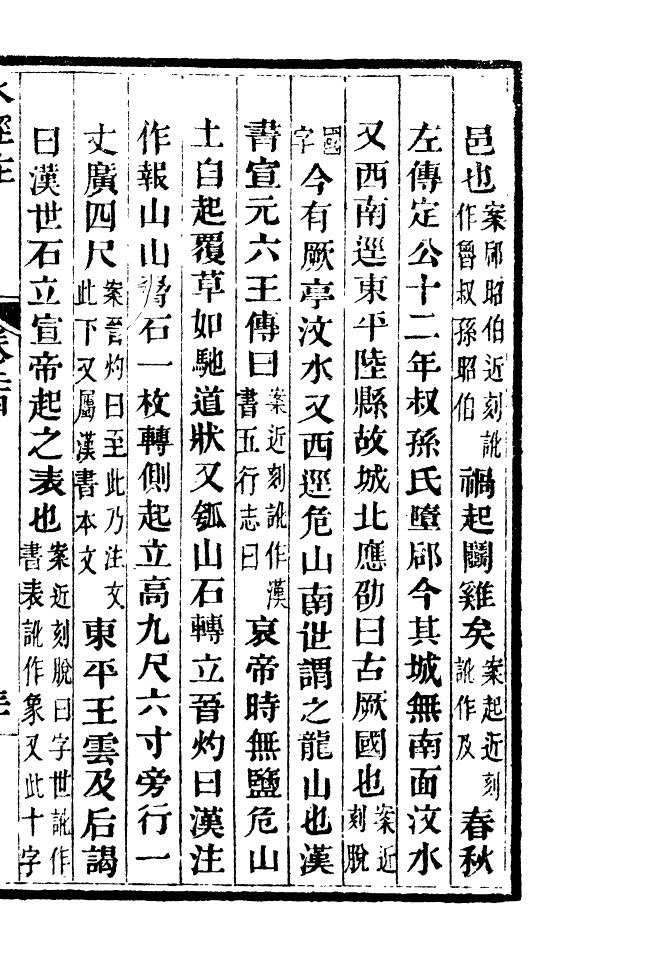 邑也案郈昭伯近刻訛作魯叔孫昭伯禍起鬭雞矣案起近刻訛作及春秋
左傳定公十二年叔孫氏墮郈今其城無南面汶水
又西南逕東平陸縣故城北應劭曰古厥國也案近刻脫
國字今有厥亭汶水又西逕危山南世謂之龍山也漢
書宣元六王傳曰案近刻訛作漢書五行志曰哀帝時無鹽危山
土自起覆草如馳道狀又瓠山石轉立晉灼曰漢注
作報山山脅石一枚轉側起立高九尺六寸旁行一
丈廣四尺案晉灼曰至此乃注文此下又屬漢書本文東平王雲及后謁
曰漢世石立宣帝起之表也案近刻脫曰字世訛作書表訛作象又此十字
水經注
卷二十四